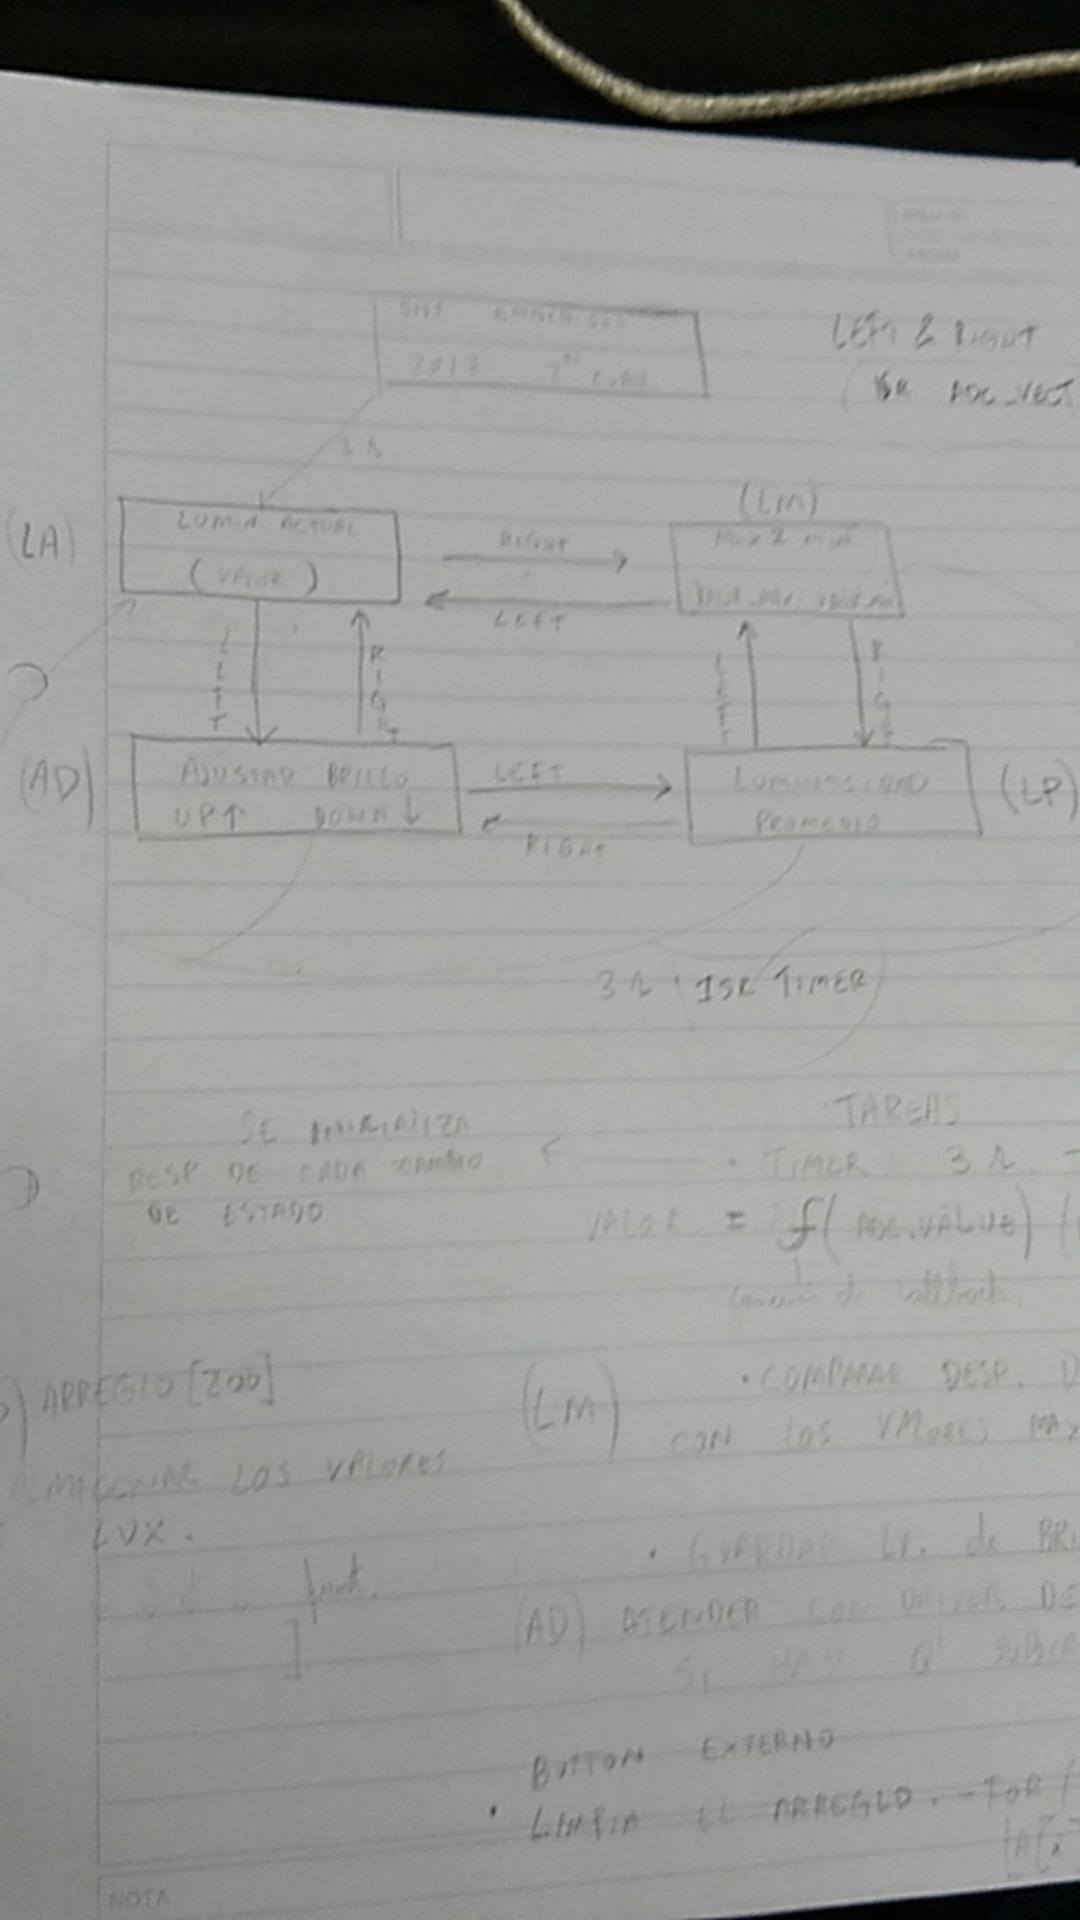 SIST EMBEBIDOS
2017 2º EVAL.
LEFT & RIGHT
ISR ADC_VECT
3 s
(LA)
LUMIN. ACTUAL
(VALOR)
RIGHT
LEFT
(LM)
MAX 2 MIN
LEFT
RIGHT
LEFT
RIGHT
(AD)
AJUSTAR BRILLO
UP↑ DOWN↓
LEFT
RIGHT
LUMINOSIDAD
PROMEDIO
(LP)
3 s ISR TIMER
TAREAS
SE INICIALIZA
DESP DE CADA CAMBIO
DE ESTADO
• TIMER 3 s
VALOR = f(ADC.VALUE)
ARREGLO [200]
ALMACENAR LOS VALORES
LUX.
(LM)
• COMPARAR DESP. D
CON LOS VALORES MAX
• GUARDAR LV. de BRI
(AD) ATENDER CON DRIVER DE
SI HAY Q' SUBIR
BUTTON EXTERNO
• LIMPIA EL ARREGLO. - FOR (
NOTA